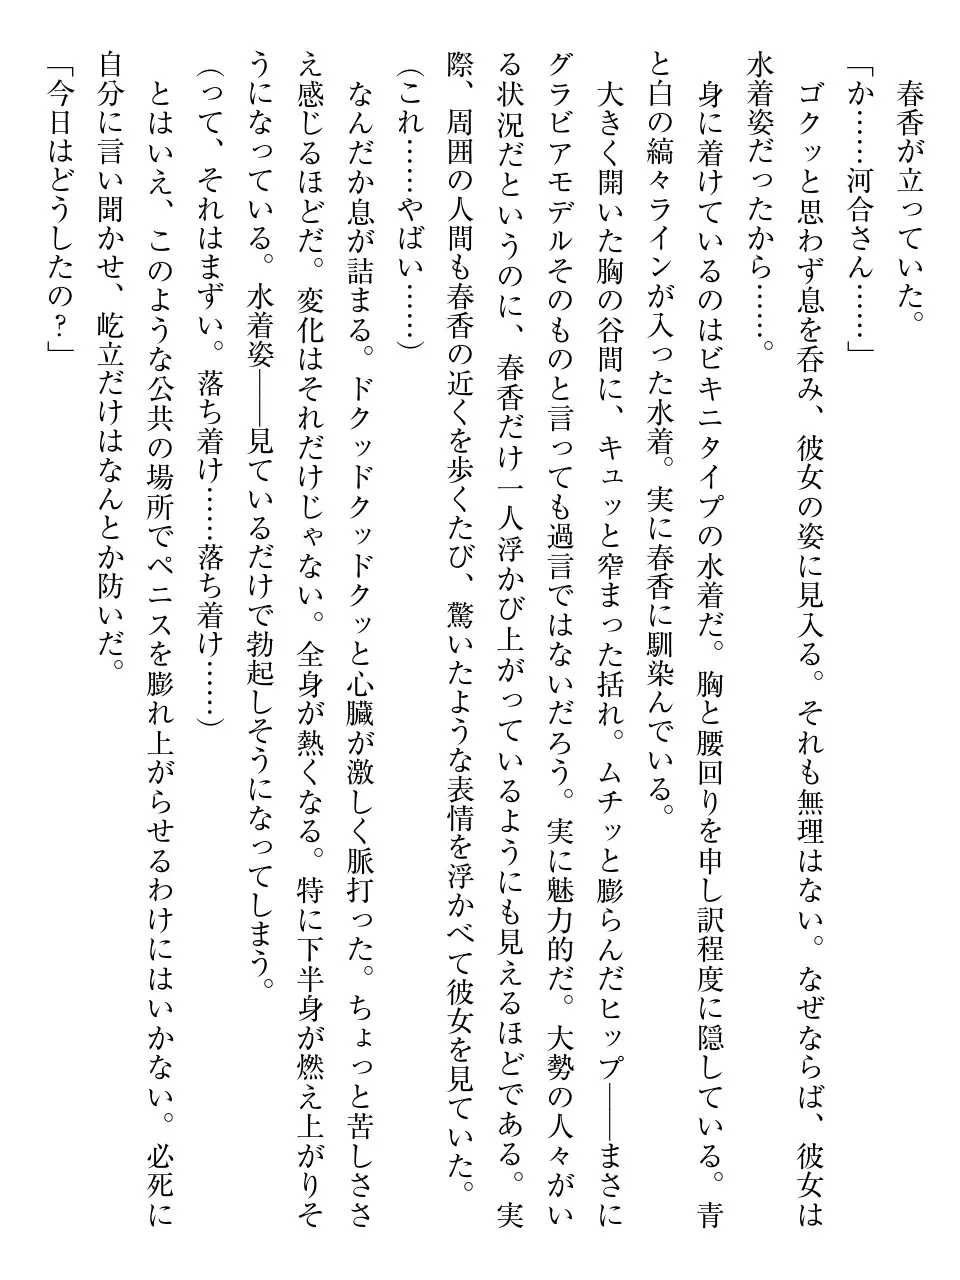 春香が立っていた。
「か……河合さん……」
ゴクッと思わず息を呑み、彼女の姿に見入る。それも無理はない。なぜならば、彼女は
水着姿だったから……。
身に着けているのはビキニタイプの水着だ。胸と腰回りを申し訳程度に隠している。青
と白の縞々ラインが入った水着。実に春香に馴染んでいる。
大きく開いた胸の谷間に、キュッと窄まった括れ。ムチッと膨らんだヒップ――まさに
グラビアモデルそのものと言っても過言ではないだろう。実に魅力的だ。大勢の人々がい
る状況だというのに、春香だけ一人浮かび上がっているようにも見えるほどである。実
際、周囲の人間も春香の近くを歩くたび、驚いたような表情を浮かべて彼女を見ていた。
（これ……やばい……）
なんだか息が詰まる。ドクッドクッドクッと心臓が激しく脈打った。ちょっと苦しささ
え感じるほどだ。変化はそれだけじゃない。全身が熱くなる。特に下半身が燃え上がりそ
うになっている。水着姿――見ているだけで勃起しそうになってしまう。
（って、それはまずい。落ち着け……落ち着け……）
とはいえ、このような公共の場所でペニスを膨れ上がらせるわけにはいかない。必死に
自分に言い聞かせ、屹立だけはなんとか防いだ。
「今日はどうしたの？」